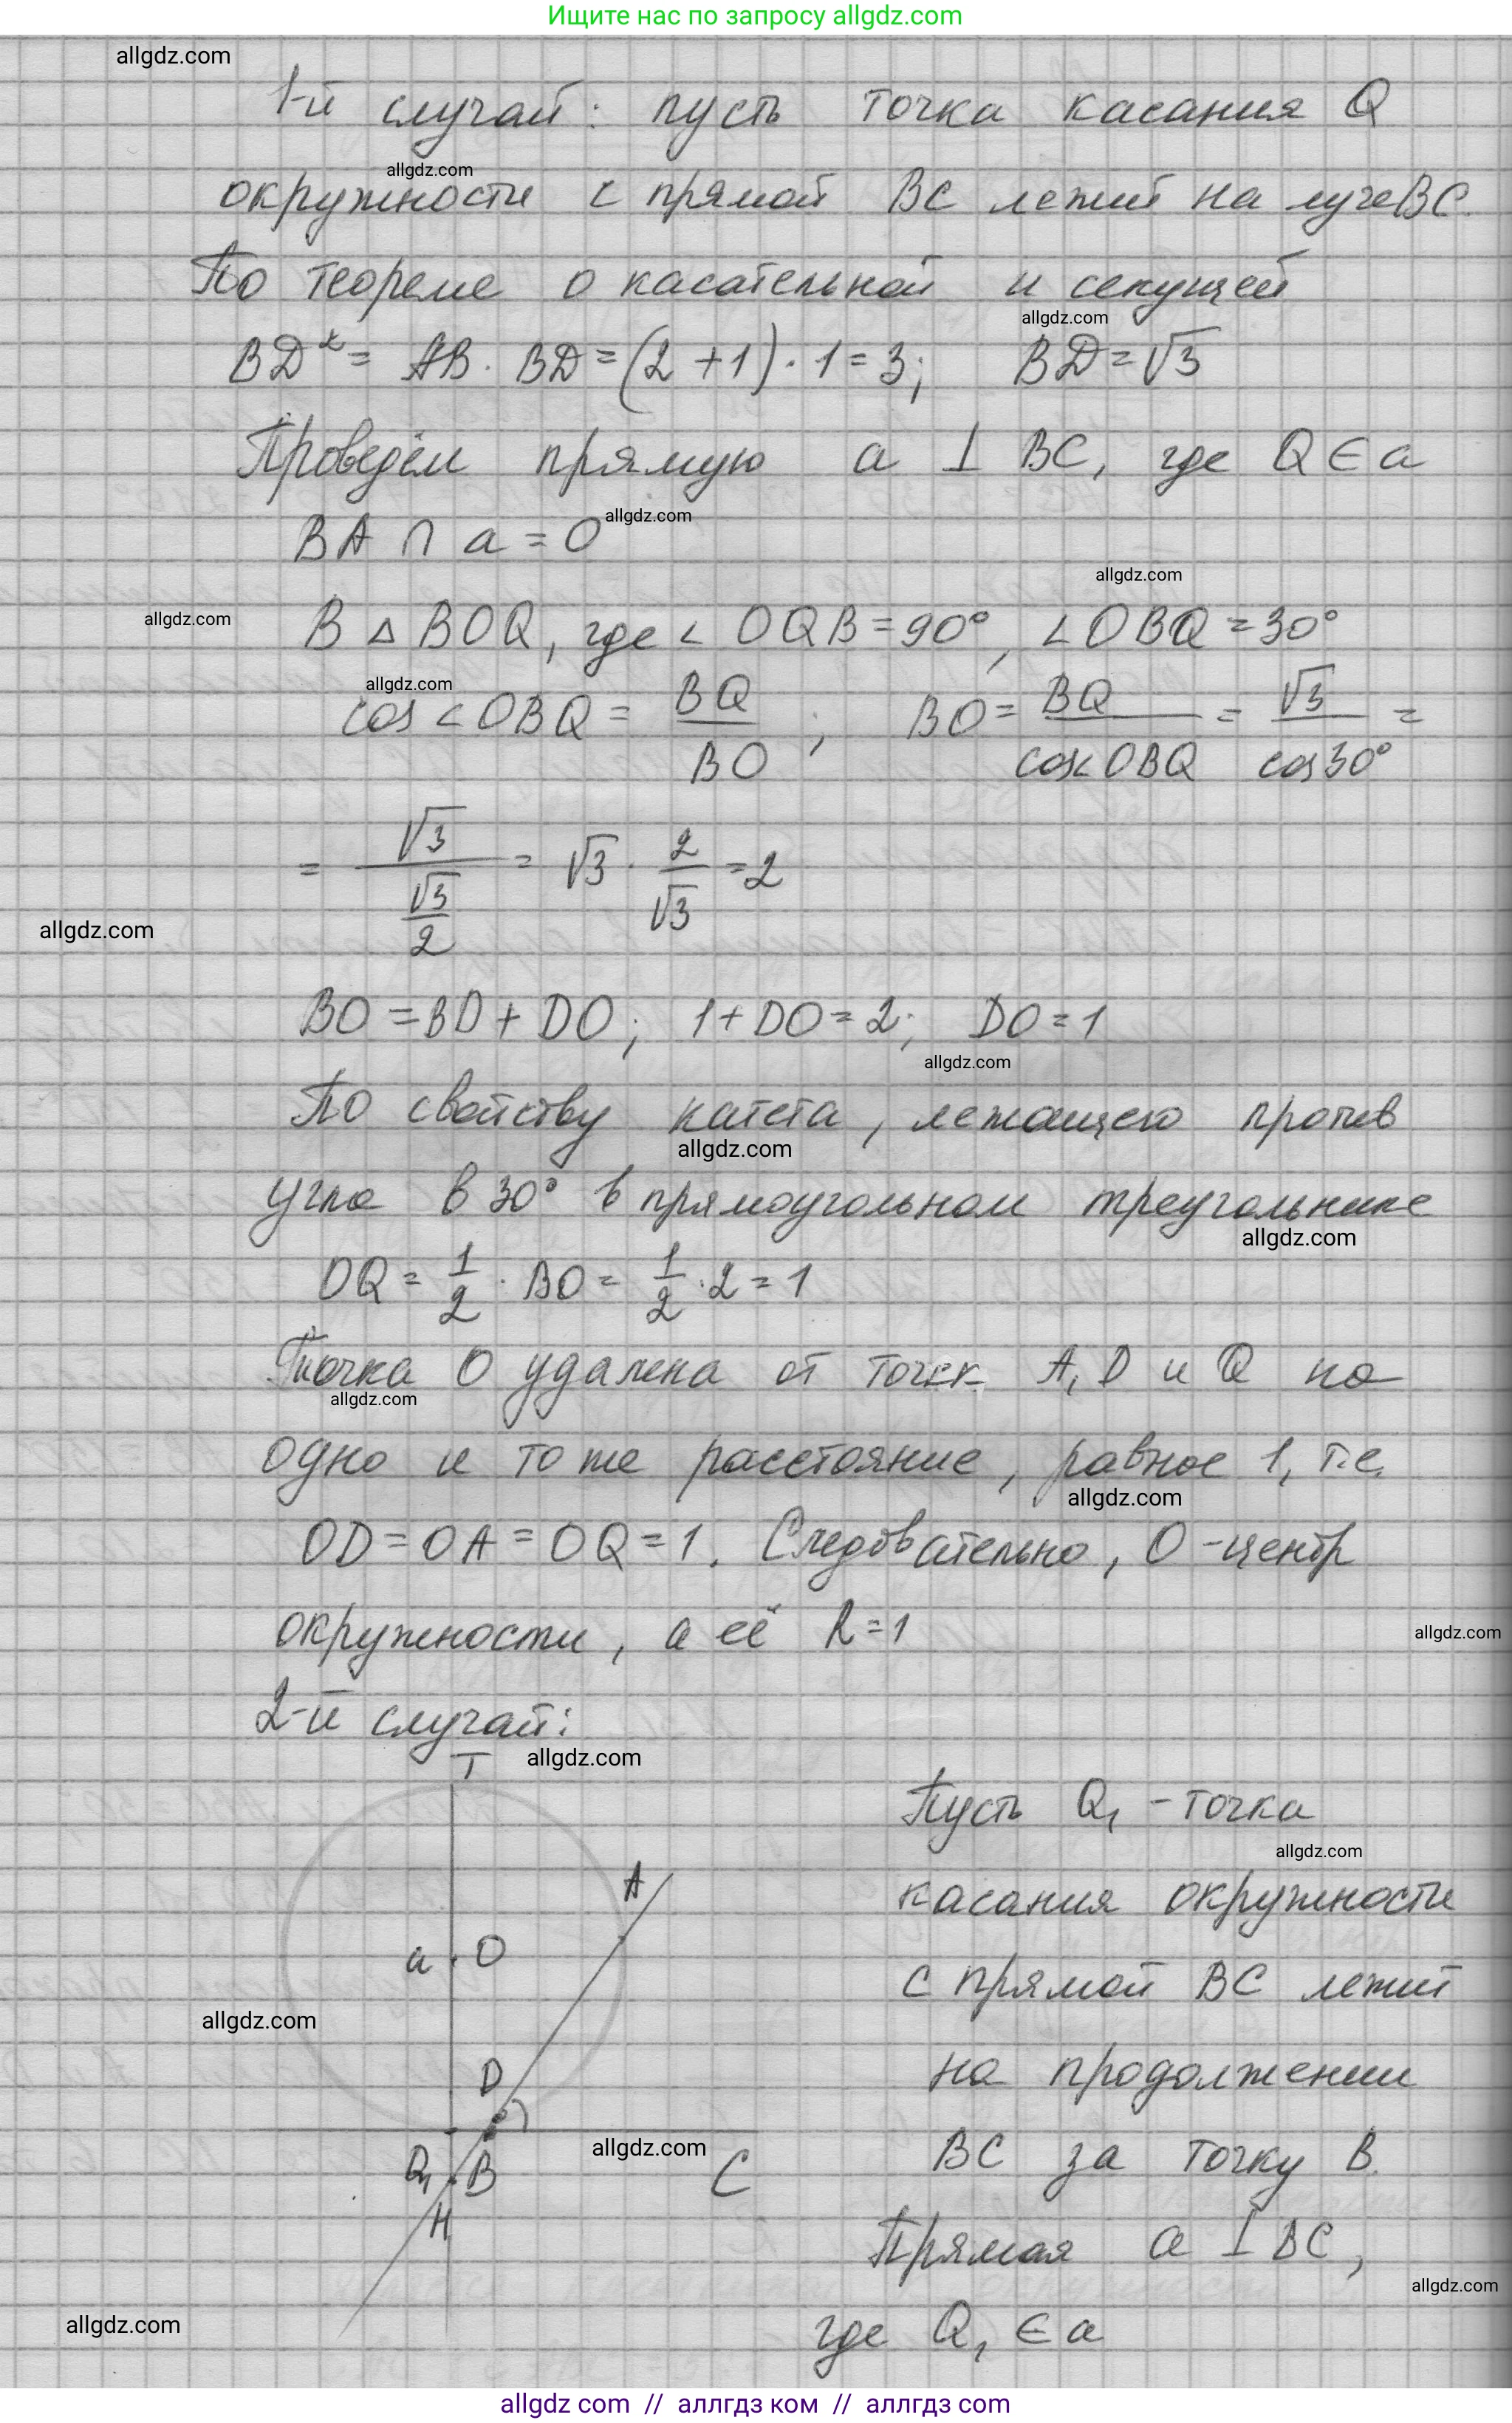 Ищите нас по запросу allgdz.com
allgdz.com
1-й случай: пусть точка касания Q
allgdz.com
окружности с прямой BC лежит на луче BC.
По теореме о касательной и секущей
allgdz.com
BD² = AB · BD = (2 + 1) · 1 = 3; BD = √3
Проведём прямую a ⊥ BC, где Q ∈ a
allgdz.com
BA ∩ a = O
allgdz.com
allgdz.com
В △ BOQ, где ∠ OQB = 90°, ∠ OBQ = 30°
allgdz.com
cos ∠ OBQ = BQ / BO ; BO = BQ / cos ∠ OBQ = √3 / cos 30° =
= √3 / (√3 / 2) = √3 · 2 / √3 = 2
allgdz.com
BO = BD + DO; 1 + DO = 2; DO = 1
allgdz.com
По свойству катета, лежащего против
allgdz.com
угла в 30° в прямоугольном треугольнике
allgdz.com
OQ = 1/2 · BO = 1/2 · 2 = 1
Точка O удалена от точек A, D и Q на
allgdz.com
одно и то же расстояние, равное 1, т.е.
allgdz.com
OD = OA = OQ = 1. Следовательно, O - центр
окружности, а её R = 1
allgdz.com
2-й случай:
allgdz.com
T
A
a
O
D
Q₁
B
C
H
allgdz.com
allgdz.com
allgdz.com
Пусть Q₁ - точка
allgdz.com
касания окружности
с прямой BC лежит
на продолжении
BC за точку B.
Прямая a ⊥ BC,
allgdz.com
где Q₁ ∈ a
allgdz.com // аллгдз ком // аллгдз com